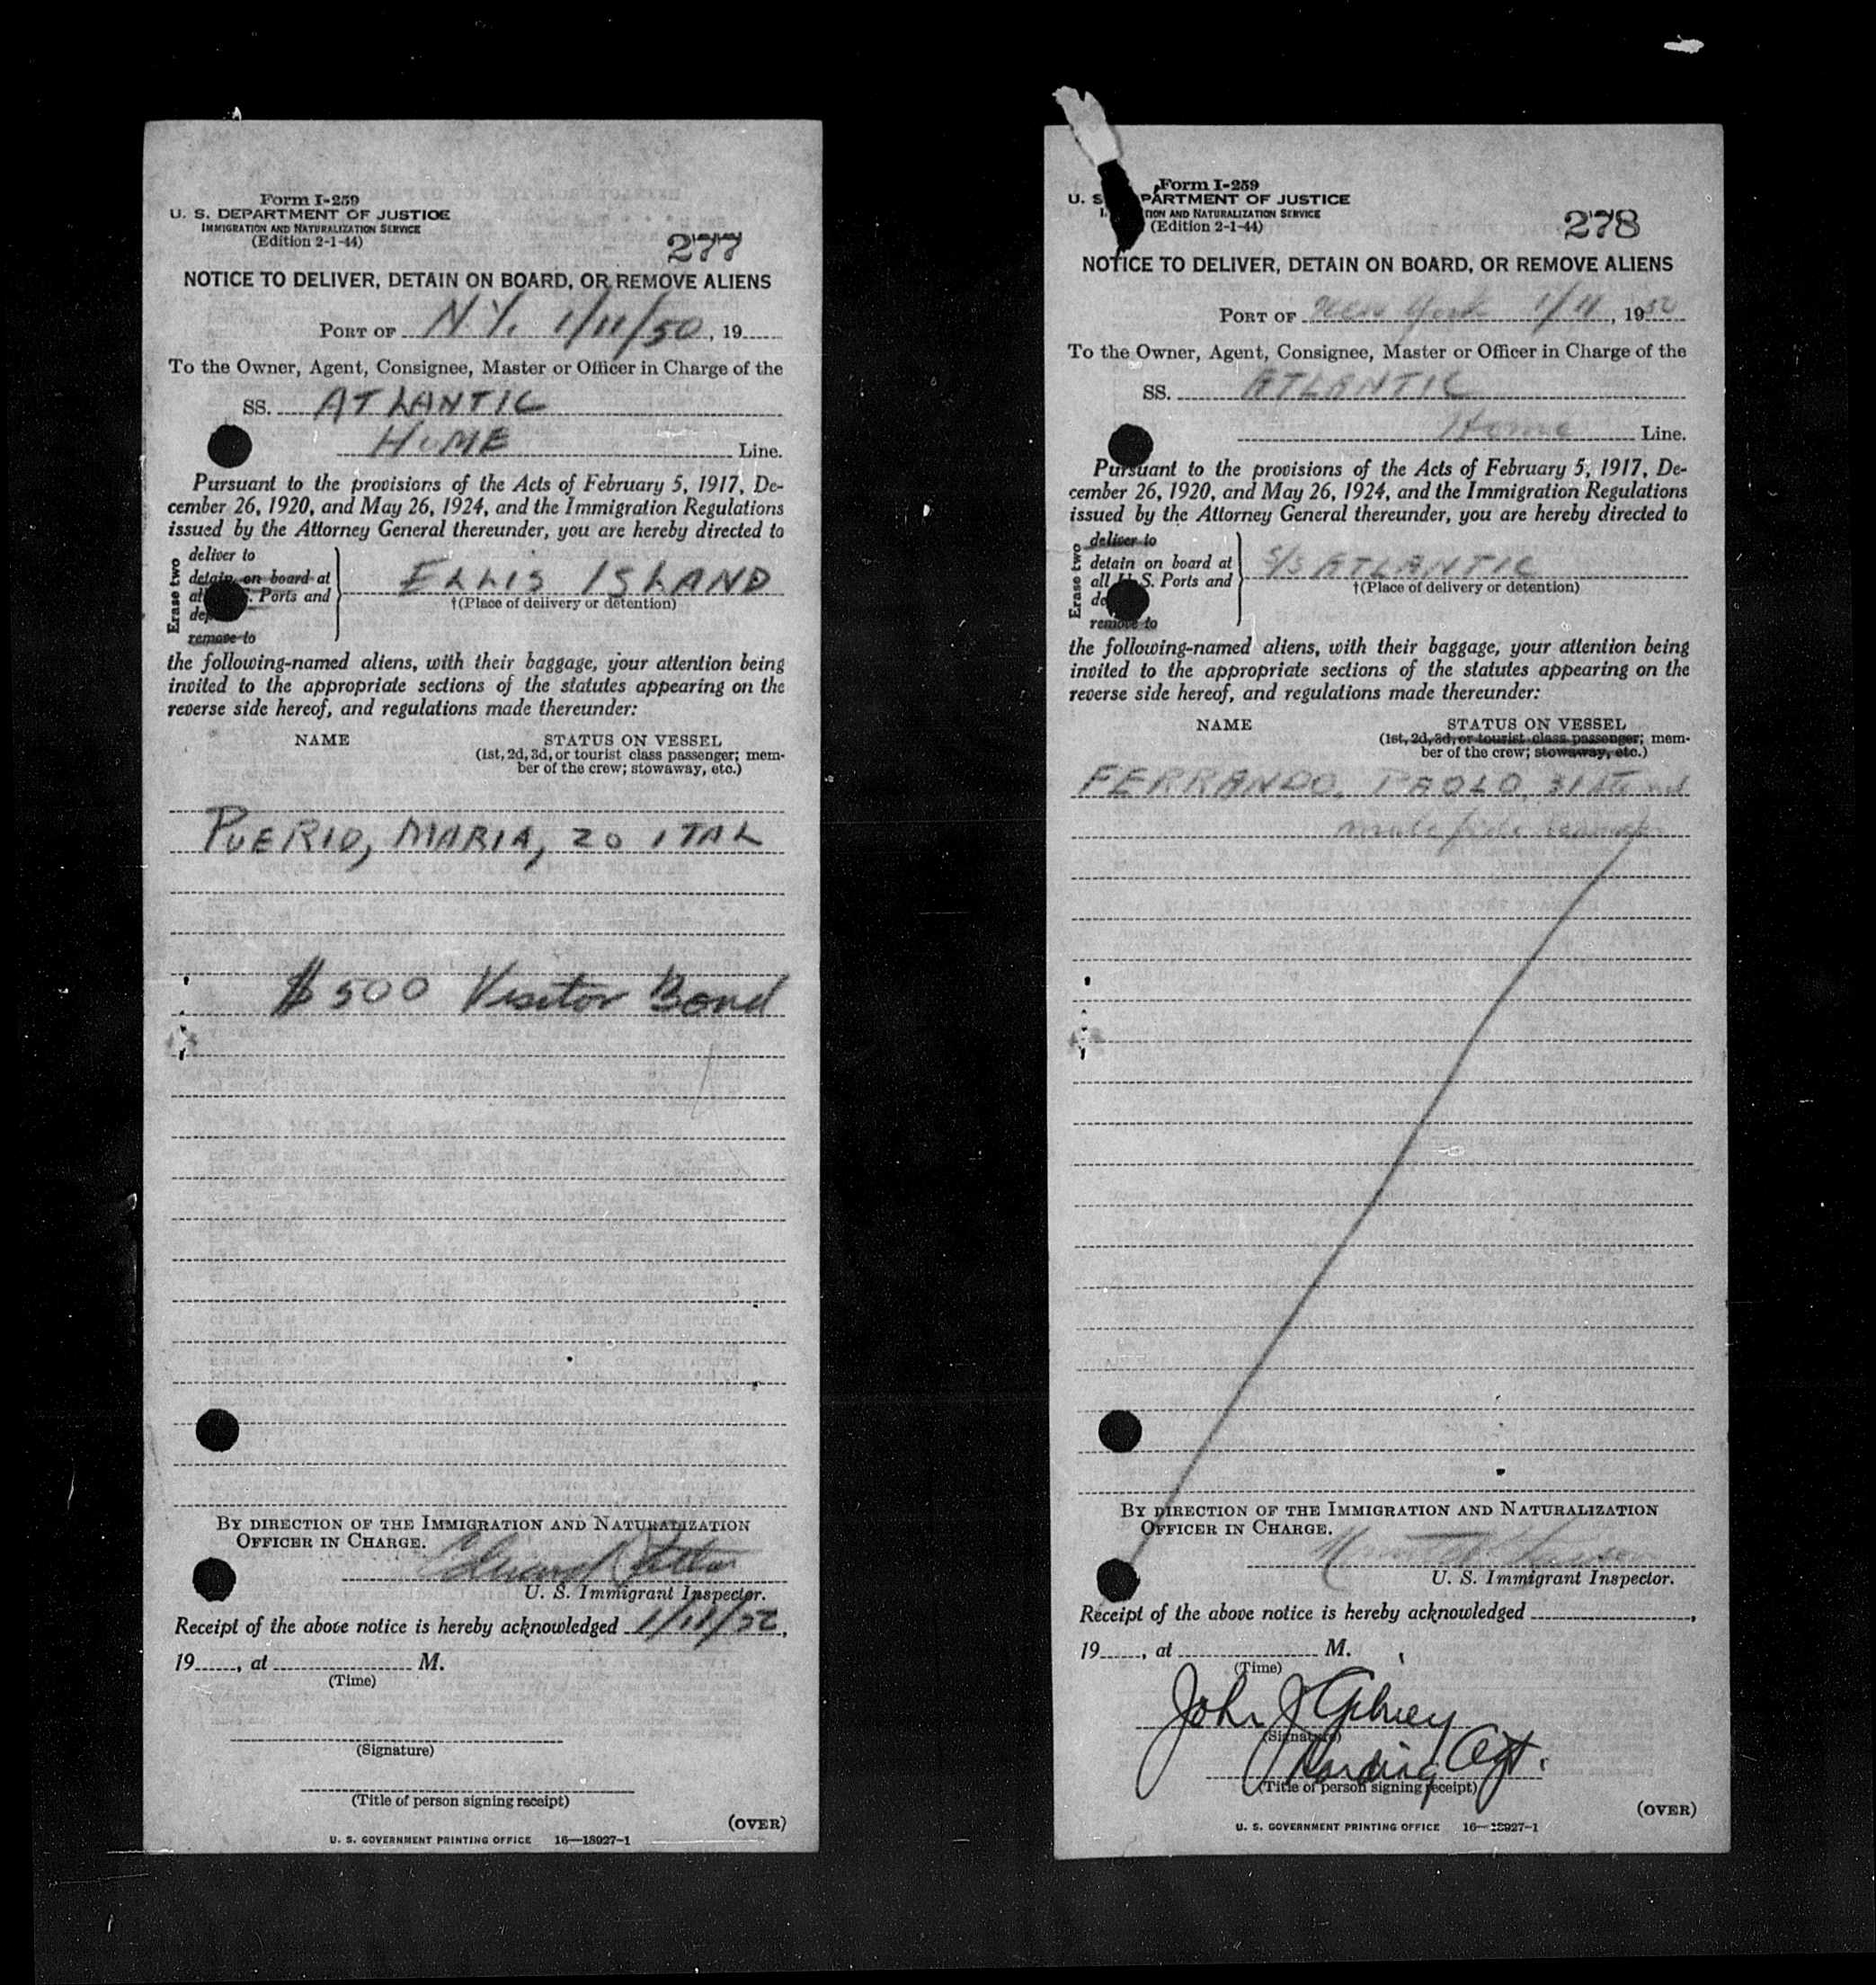 Form I-259
U. S. DEPARTMENT OF JUSTICE
IMMIGRATION AND NATURALIZATION SERVICE
(Edition 2-1-44)
277
NOTICE TO DELIVER, DETAIN ON BOARD, OR REMOVE ALIENS
PORT OF N.Y. 1/11/50, 19
To the Owner, Agent, Consignee, Master or Officer in Charge of the
SS. ATLANTIC
HOME Line.
Pursuant to the provisions of the Acts of February 5, 1917, De-
cember 26, 1920, and May 26, 1924, and the Immigration Regulations
issued by the Attorney General thereunder, you are hereby directed to
Erase two
deliver to
detain on board at
S. Ports and
remove to
ELLIS ISLAND
†(Place of delivery or detention)
the following-named aliens, with their baggage, your attention being
invited to the appropriate sections of the statutes appearing on the
reverse side hereof, and regulations made thereunder:
NAME STATUS ON VESSEL
(1st, 2d, 3d, or tourist class passenger; mem-
ber of the crew; stowaway, etc.)
PUERIO, MARIA, 20 ITAL
$500 Visitor Bond
BY DIRECTION OF THE IMMIGRATION AND NATURALIZATION
OFFICER IN CHARGE.
Edward
U. S. Immigrant Inspector.
Receipt of the above notice is hereby acknowledged 1/11/50,
19, at M.
(Time)
(Signature)
(Title of person signing receipt)
(OVER)
U. S. GOVERNMENT PRINTING OFFICE 16—18927-1
Form I-259
U. S. PARTMENT OF JUSTICE
TION AND NATURALIZATION SERVICE
(Edition 2-1-44)
278
NOTICE TO DELIVER, DETAIN ON BOARD, OR REMOVE ALIENS
PORT OF New York 1/11, 1950
To the Owner, Agent, Consignee, Master or Officer in Charge of the
SS. ATLANTIC
Home Line.
Pursuant to the provisions of the Acts of February 5, 1917, De-
cember 26, 1920, and May 26, 1924, and the Immigration Regulations
issued by the Attorney General thereunder, you are hereby directed to
Erase two
deliver to
detain on board at
all U. S. Ports and
remove to
S/S ATLANTIC
†(Place of delivery or detention)
the following-named aliens, with their baggage, your attention being
invited to the appropriate sections of the statutes appearing on the
reverse side hereof, and regulations made thereunder:
NAME STATUS ON VESSEL
(1st, 2d, 3d, or tourist class passenger; mem-
ber of the crew; stowaway, etc.)
FERRANDO, PAOLO, 31
male fide seaman
BY DIRECTION OF THE IMMIGRATION AND NATURALIZATION
OFFICER IN CHARGE.
U. S. Immigrant Inspector.
Receipt of the above notice is hereby acknowledged,
19, at M.
(Time)
John J Gilvey
(Signature)
Boarding Agt.
(Title of person signing receipt)
(OVER)
U. S. GOVERNMENT PRINTING OFFICE 16—18927-1